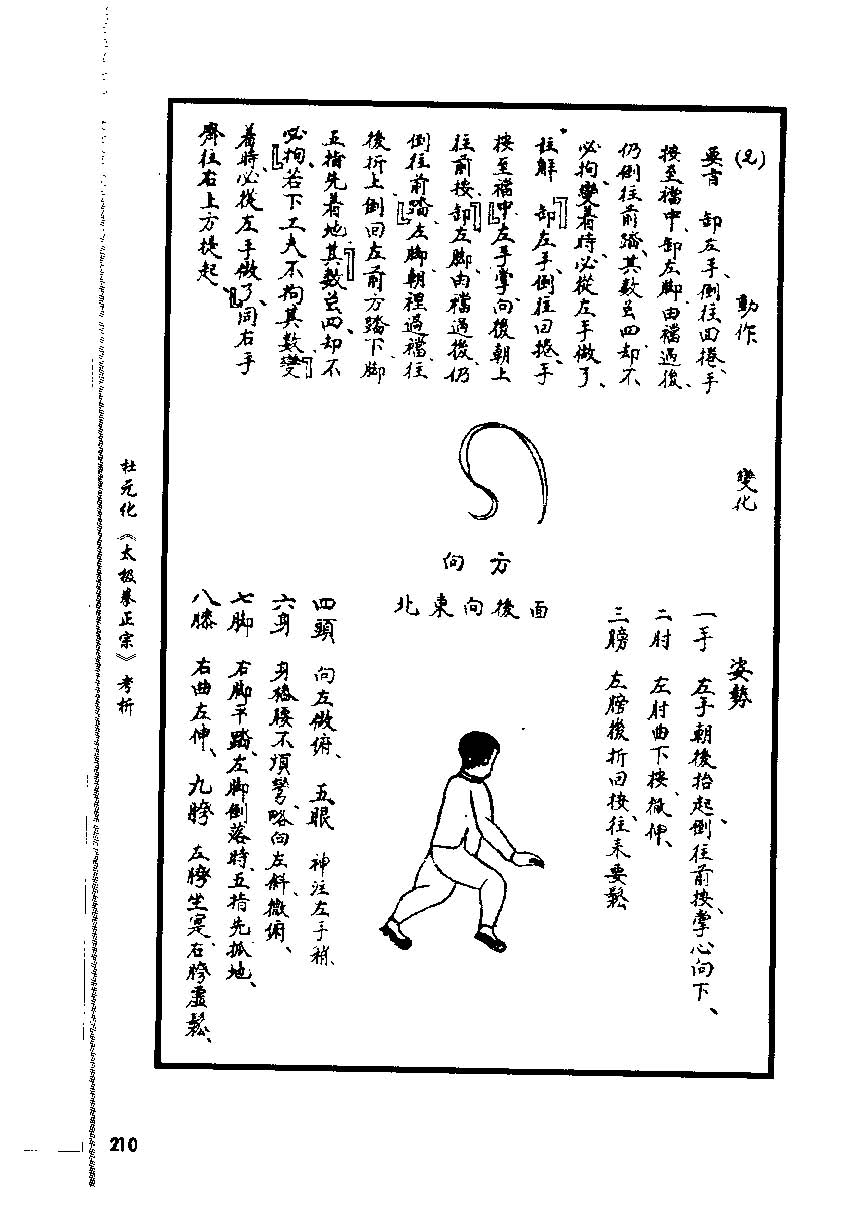 (2)
動作
要言 卸左手、倒往回捲、手
按至襠中、卸左脚、由襠過後、
仍倒往前踏、其数㒳四、却不
必拘、變着時、必從左手做了、
註解 卸左手、倒往回捲、手
按至襠中、左手掌向後朝上
往前按、卸左脚、由襠過後、仍
倒往前踏、左脚、朝裡過襠、往
後折上倒回左前方踏下脚
五指先着地其数㒳四、却不
必拘、若下工夫不拘其数變
着時、必從左手做了、同右手
齊往右上方提起、
變化
方向
面後向東北
姿勢
一手 左手朝後抬起、倒往前按、掌心向下、
二肘 左肘曲下按、微伸、
三膀 左膀後折回按、往来要鬆
四頭 向左微俯、 五眼 神注左手稍、
六身 身捲腰不須彎、略向左斜、微俯、
七脚 右脚平踏、左脚倒落時、五指先抓地、
八膝 右曲左伸、 九胯 左胯坐寔、右胯虚鬆、
杜元化《太极拳正宗》考析
210